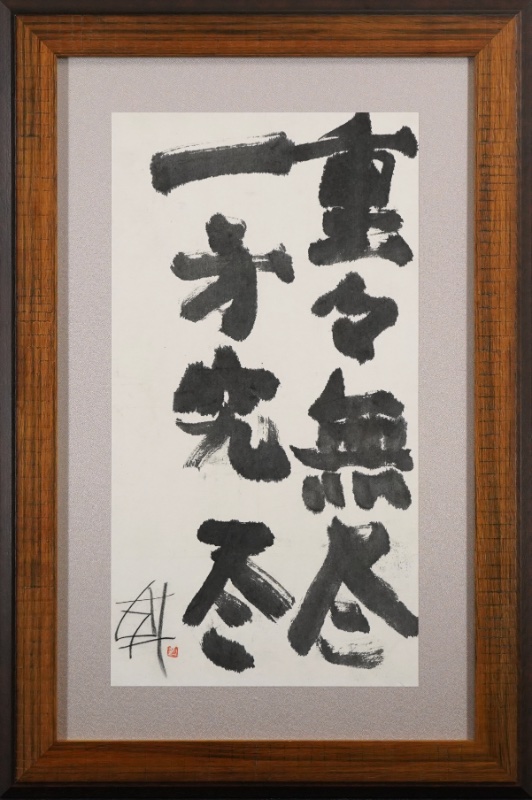 重々無尽
一方究尽